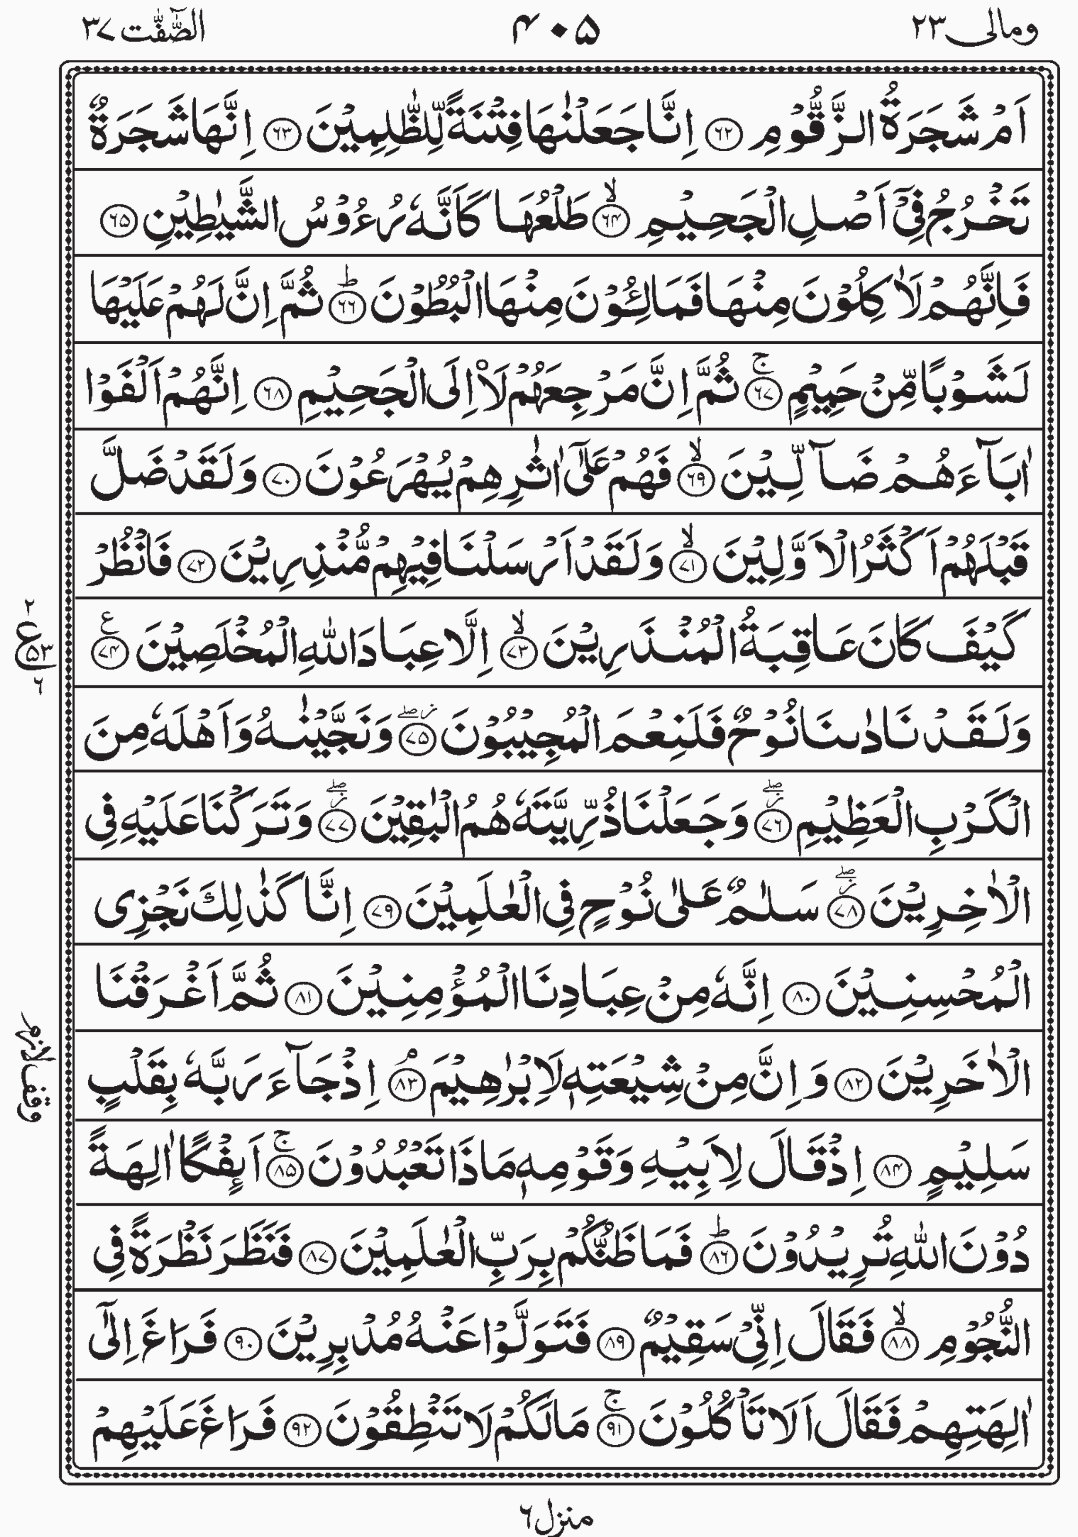 ومالی ۲۳
۴۰۵
الصّٰٓفّٰت ۳۷
اَمْ شَجَرَةُ الزَّقُّوْمِ ۶۲ اِنَّا جَعَلْنٰهَا فِتْنَةً لِّلظّٰلِمِيْنَ ۶۳ اِنَّهَا شَجَرَةٌ
تَخْرُجُ فِيْۤ اَصْلِ الْجَحِيْمِ ۙ۶۴ طَلْعُهَا كَاَنَّهٗ رُءُوْسُ الشَّيٰطِيْنِ ۶۵
فَاِنَّهُمْ لَاٰكِلُوْنَ مِنْهَا فَمَالِـُٔوْنَ مِنْهَا الْبُطُوْنَ ؕ۶۶ ثُمَّ اِنَّ لَهُمْ عَلَيْهَا
لَشَوْبًا مِّنْ حَمِيْمٍ ۚ۶۷ ثُمَّ اِنَّ مَرْجِعَهُمْ لَا۟اِلَى الْجَحِيْمِ ۶۸ اِنَّهُمْ اَلْفَوْا
اٰبَآءَهُمْ ضَآلِّيْنَ ۙ۶۹ فَهُمْ عَلٰۤى اٰثٰرِهِمْ يُهْرَعُوْنَ ۷۰ وَلَقَدْ ضَلَّ
قَبْلَهُمْ اَكْثَرُ الْاَوَّلِيْنَ ۙ۷۱ وَلَقَدْ اَرْسَلْنَا فِيْهِمْ مُّنْذِرِيْنَ ۷۲ فَانْظُرْ
كَيْفَ كَانَ عَاقِبَةُ الْمُنْذَرِيْنَ ۙ۷۳ اِلَّا عِبَادَ اللّٰهِ الْمُخْلَصِيْنَ ۷۴ ع
۲
ع ۵۳
۶
وَلَقَدْ نَادٰىنَا نُوْحٌ فَلَنِعْمَ الْمُجِيْبُوْنَ ۷۵ ز صلے وَنَجَّيْنٰهُ وَاَهْلَهٗ مِنَ
الْكَرْبِ الْعَظِيْمِ ۷۶ ز صلے وَجَعَلْنَا ذُرِّيَّتَهٗ هُمُ الْبٰقِيْنَ ۷۷ ز صلے وَتَرَكْنَا عَلَيْهِ فِى
الْاٰخِرِيْنَ ۷۸ ز صلے سَلٰمٌ عَلٰى نُوْحٍ فِى الْعٰلَمِيْنَ ۷۹ اِنَّا كَذٰلِكَ نَجْزِى
الْمُحْسِنِيْنَ ۸۰ اِنَّهٗ مِنْ عِبَادِنَا الْمُؤْمِنِيْنَ ۸۱ ثُمَّ اَغْرَقْنَا
الْاٰخَرِيْنَ ۸۲ وَاِنَّ مِنْ شِيْعَتِهٖ لَاِبْرٰهِيْمَ ۘ۸۳ اِذْ جَآءَ رَبَّهٗ بِقَلْبٍ
وقف لازم
سَلِيْمٍ ۸۴ اِذْ قَالَ لِاَبِيْهِ وَقَوْمِهٖ مَاذَا تَعْبُدُوْنَ ۚ۸۵ اَىِٕفْكًا اٰلِهَةً
دُوْنَ اللّٰهِ تُرِيْدُوْنَ ؕ۸۶ فَمَا ظَنُّكُمْ بِرَبِّ الْعٰلَمِيْنَ ۸۷ فَنَظَرَ نَظْرَةً فِى
النُّجُوْمِ ۙ۸۸ فَقَالَ اِنِّىْ سَقِيْمٌ ۸۹ فَتَوَلَّوْا عَنْهُ مُدْبِرِيْنَ ۹۰ فَرَاغَ اِلٰۤى
اٰلِهَتِهِمْ فَقَالَ اَلَا تَاْكُلُوْنَ ۚ۹۱ مَا لَكُمْ لَا تَنْطِقُوْنَ ۹۲ فَرَاغَ عَلَيْهِمْ
منزل ۶